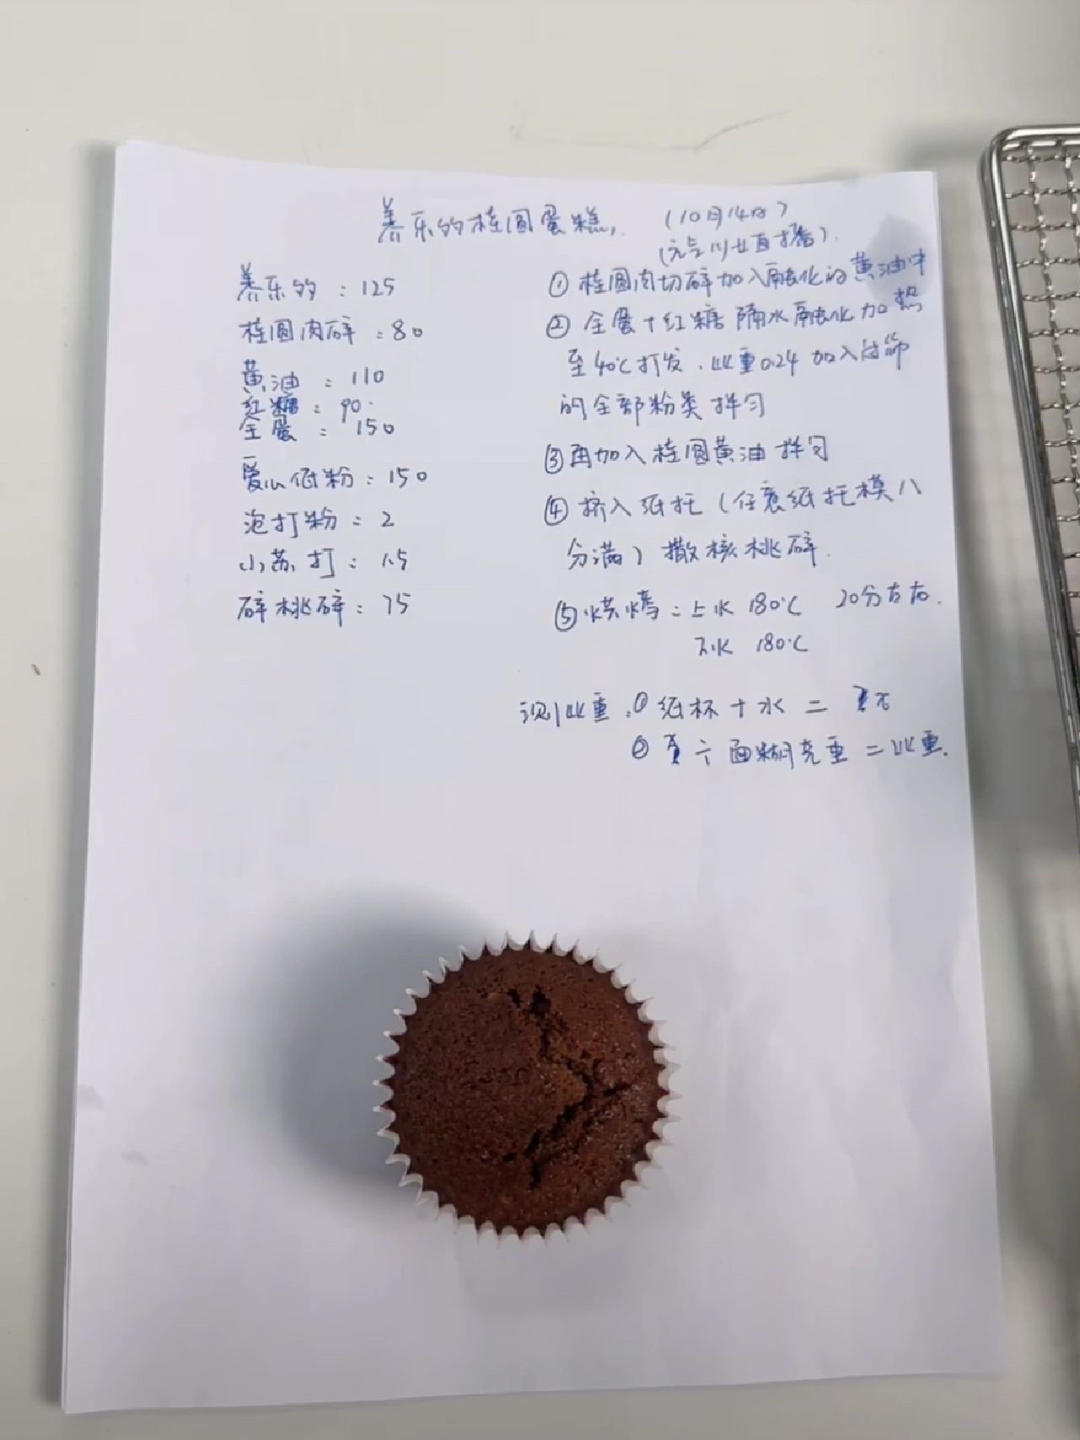 养乐的桂圆蛋糕.
(10月14日)
直播)
养乐的：125
桂圆肉碎：80
黄油：110
红糖：90
全蛋：150
爱心低粉：150
泡打粉：2
小苏打：1.5
碎桃碎：75
① 桂圆肉切碎加入融化的黄油中
② 全蛋+红糖 隔水融化加热
至40℃打发.比重0.24 加入过筛
的全部粉类拌匀
③再加入桂圆黄油拌匀
④ 挤入纸托(任意纸托模八
分满)撒核桃碎.
⑤烘烤：上火 180℃ 20分左右.
下火 180℃
测比重.① 纸杯+水 =
② ÷ 面糊克重 =比重.